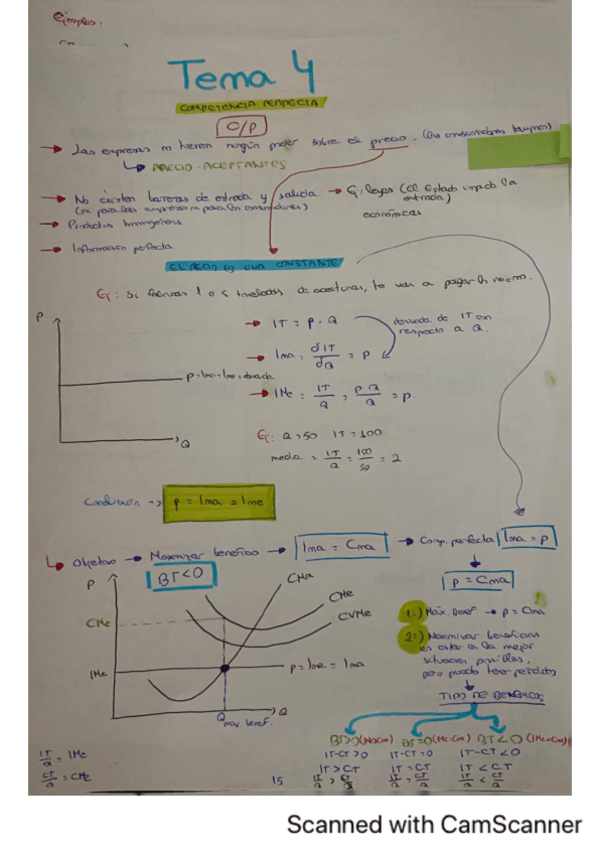 Ejemplos:
Tema 4
COMPETENCIA PERFECTA
C/P
→ Las empresas no tienen ningún poder sobre el precio. (los consumidores tampoco)
↳ PRECIO-ACEPTANTES
→ No existen barreras de entrada y salida → Ej: leyes (el Estado impide la entrada)
(ni para las empresas ni para los consumidores)
económicas
→ Productos homogéneos
→ Información perfecta
EL PRECIO ES UNA CONSTANTE
Ej: Si fabricas 1 o 5 toneladas de aceitunas, te van a pagar lo mismo.
P
→ IT = P · Q
derivada de IT con respecto a Q.
→ Ima = dIT/dQ = P
P = Ima = Ime = demanda
→ IMe = IT/Q = P·Q/Q = P.
Q
Ej: Q = 50 IT = 100
media = IT/Q = 100/50 = 2
Conclusión → P = Ima = Ime
↳ Objetivo → Maximizar beneficio → Ima = Cma → Comp. perfecta Ima = P
BT<0
P = Cma
P
CMa
CMe
CMe
CVMe
1º) Máx. Benef. → P = Cma
2º) Maximizar beneficios es estar en la mejor situación posible, pero puedo tener pérdidas
IMe
P = Ime = Ima
TIPOS DE BENEFICIOS
Q máx. benef.
Q
BT>0 (IMe>CMe) BT=0 (IMe=CMe) BT<0 (IMe<CMe)
IT-CT>0 IT-CT=0 IT-CT<0
IT>CT IT=CT IT<CT
IT/Q > CT/Q IT/Q = CT/Q IT/Q < CT/Q
IT/Q = IMe
CT/Q = CMe
15
Scanned with CamScanner